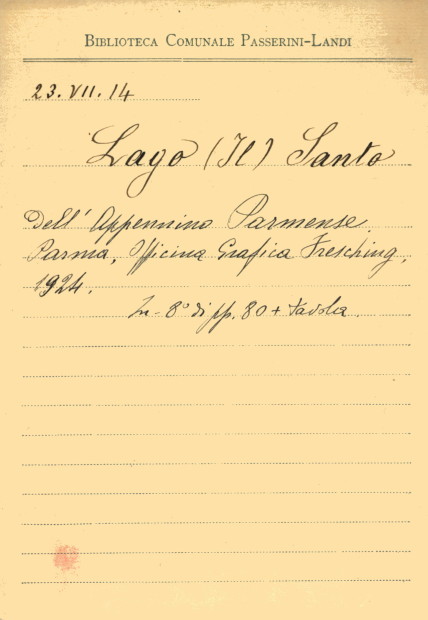 BIBLIOTECA COMUNALE PASSERINI-LANDI
23. VII. 14
Lago (Il) Santo
Dell' Appennino Parmense.
Parma, Officina Grafica Fresching,
1924.
In-8° di pp. 80 + tavola.